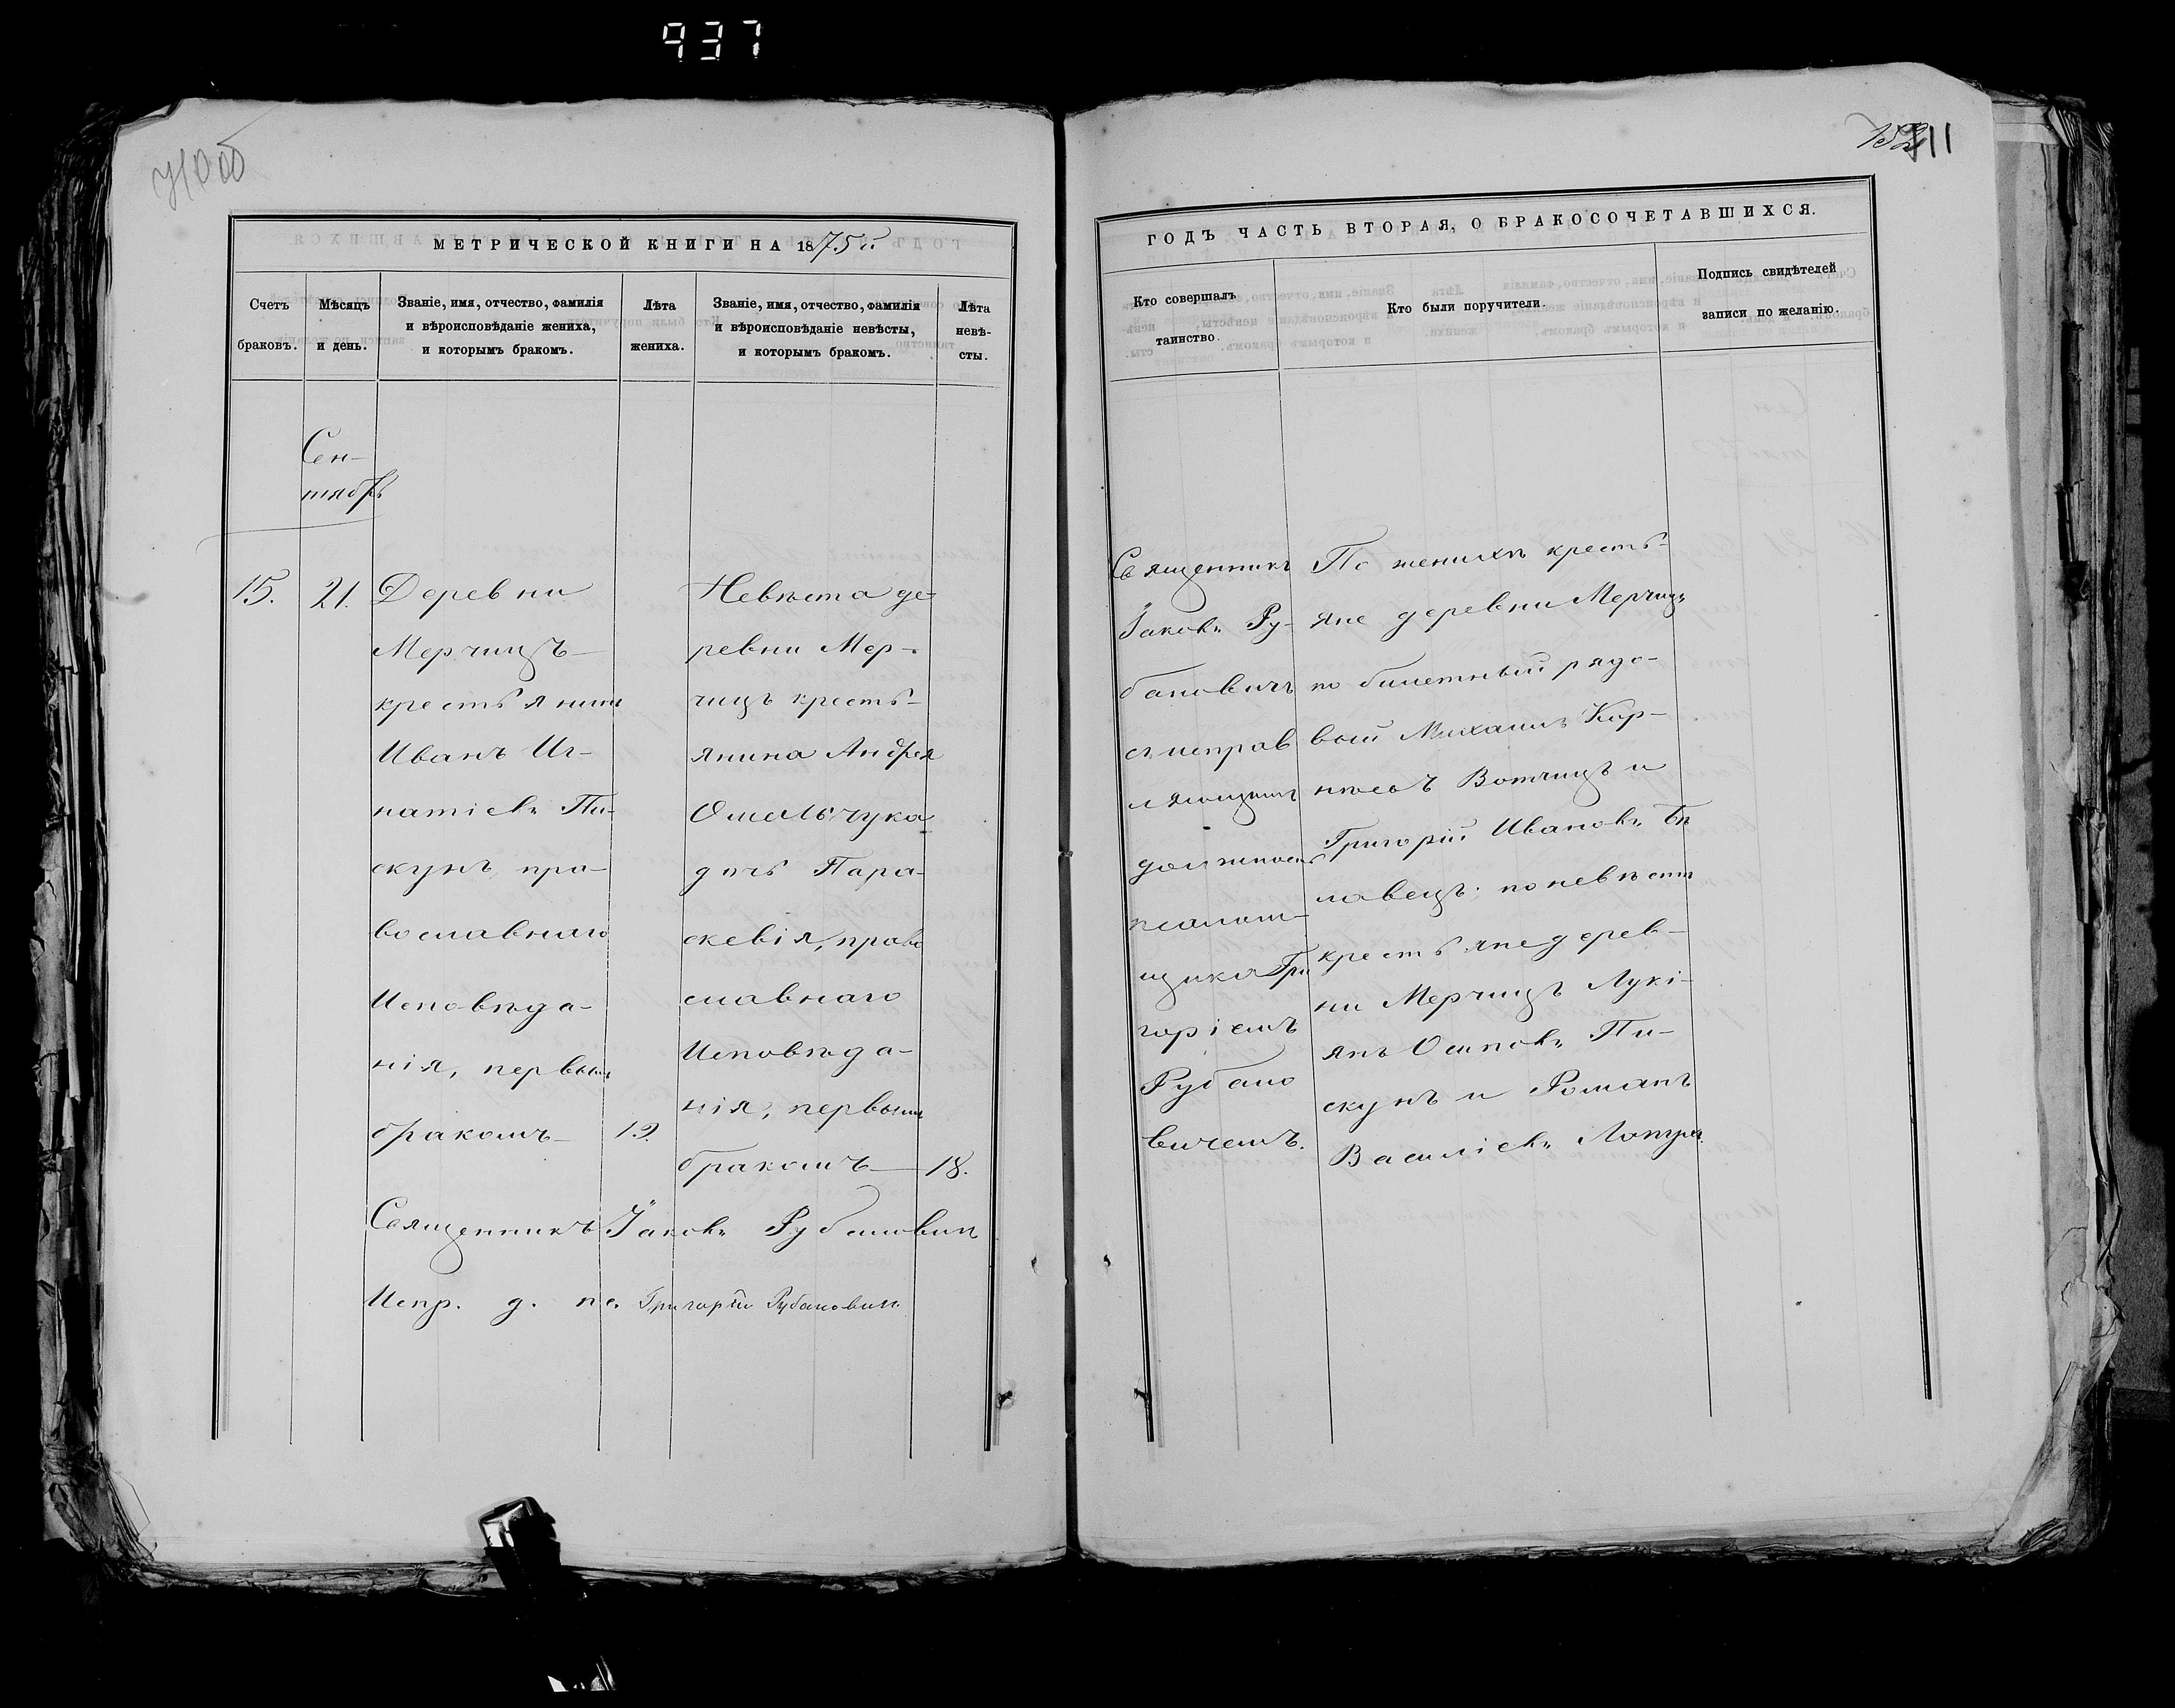 937
711
МЕТРИЧЕСКОЙ КНИГИ НА 1875 й
Счетъ браковъ.
Мѣсяцъ и день.
Званіе, имя, отчество, фамилія
и вѣроисповѣданіе жениха,
и которымъ бракомъ.
Лѣта
жениха.
Званіе, имя, отчество, фамилія
и вѣроисповѣданіе невѣсты,
и которымъ бракомъ.
Лѣта
невѣ-
сты.
Сен-
тябрь
15.
21.
Деревни
Мерчицъ
крестьянинъ
Иванъ Иг-
натіевъ Пи-
скунъ пра-
вославнаго
Исповѣда-
нія, первымъ
бракомъ
19.
Невѣста де-
ревни Мер-
чицъ кресть-
янина Андрея
Омельчука
дочь Пара-
скевія, право
славнаго
Исповѣда-
нія, первымъ
бракомъ
18.
Священникъ Іаковъ Рубановичъ
Испр. д. пс. Григорій Рубановичъ
ГОДЪ ЧАСТЬ ВТОРАЯ, О БРАКОСОЧЕТАВШИХСЯ.
Кто совершалъ
таинство.
Кто были поручители.
Подпись свидѣтелей
записи по желанію.
Священникъ
Іаковъ Ру-
бановичъ
съ исправ
ляющимъ
должность
псалом-
щика Гри
горіемъ
Рубано
вичемъ.
По женихѣ кресть-
яне деревни Мерчицъ
билетный рядо-
вой Михаилъ
Вотчицъ и
Григорій Ивановъ Бѣ
лавецъ; по невѣстѣ
крестьяне дерев-
ни Мерчицъ Лукі-
янъ Осиповъ Пи-
скунъ и Романъ
Василіевъ